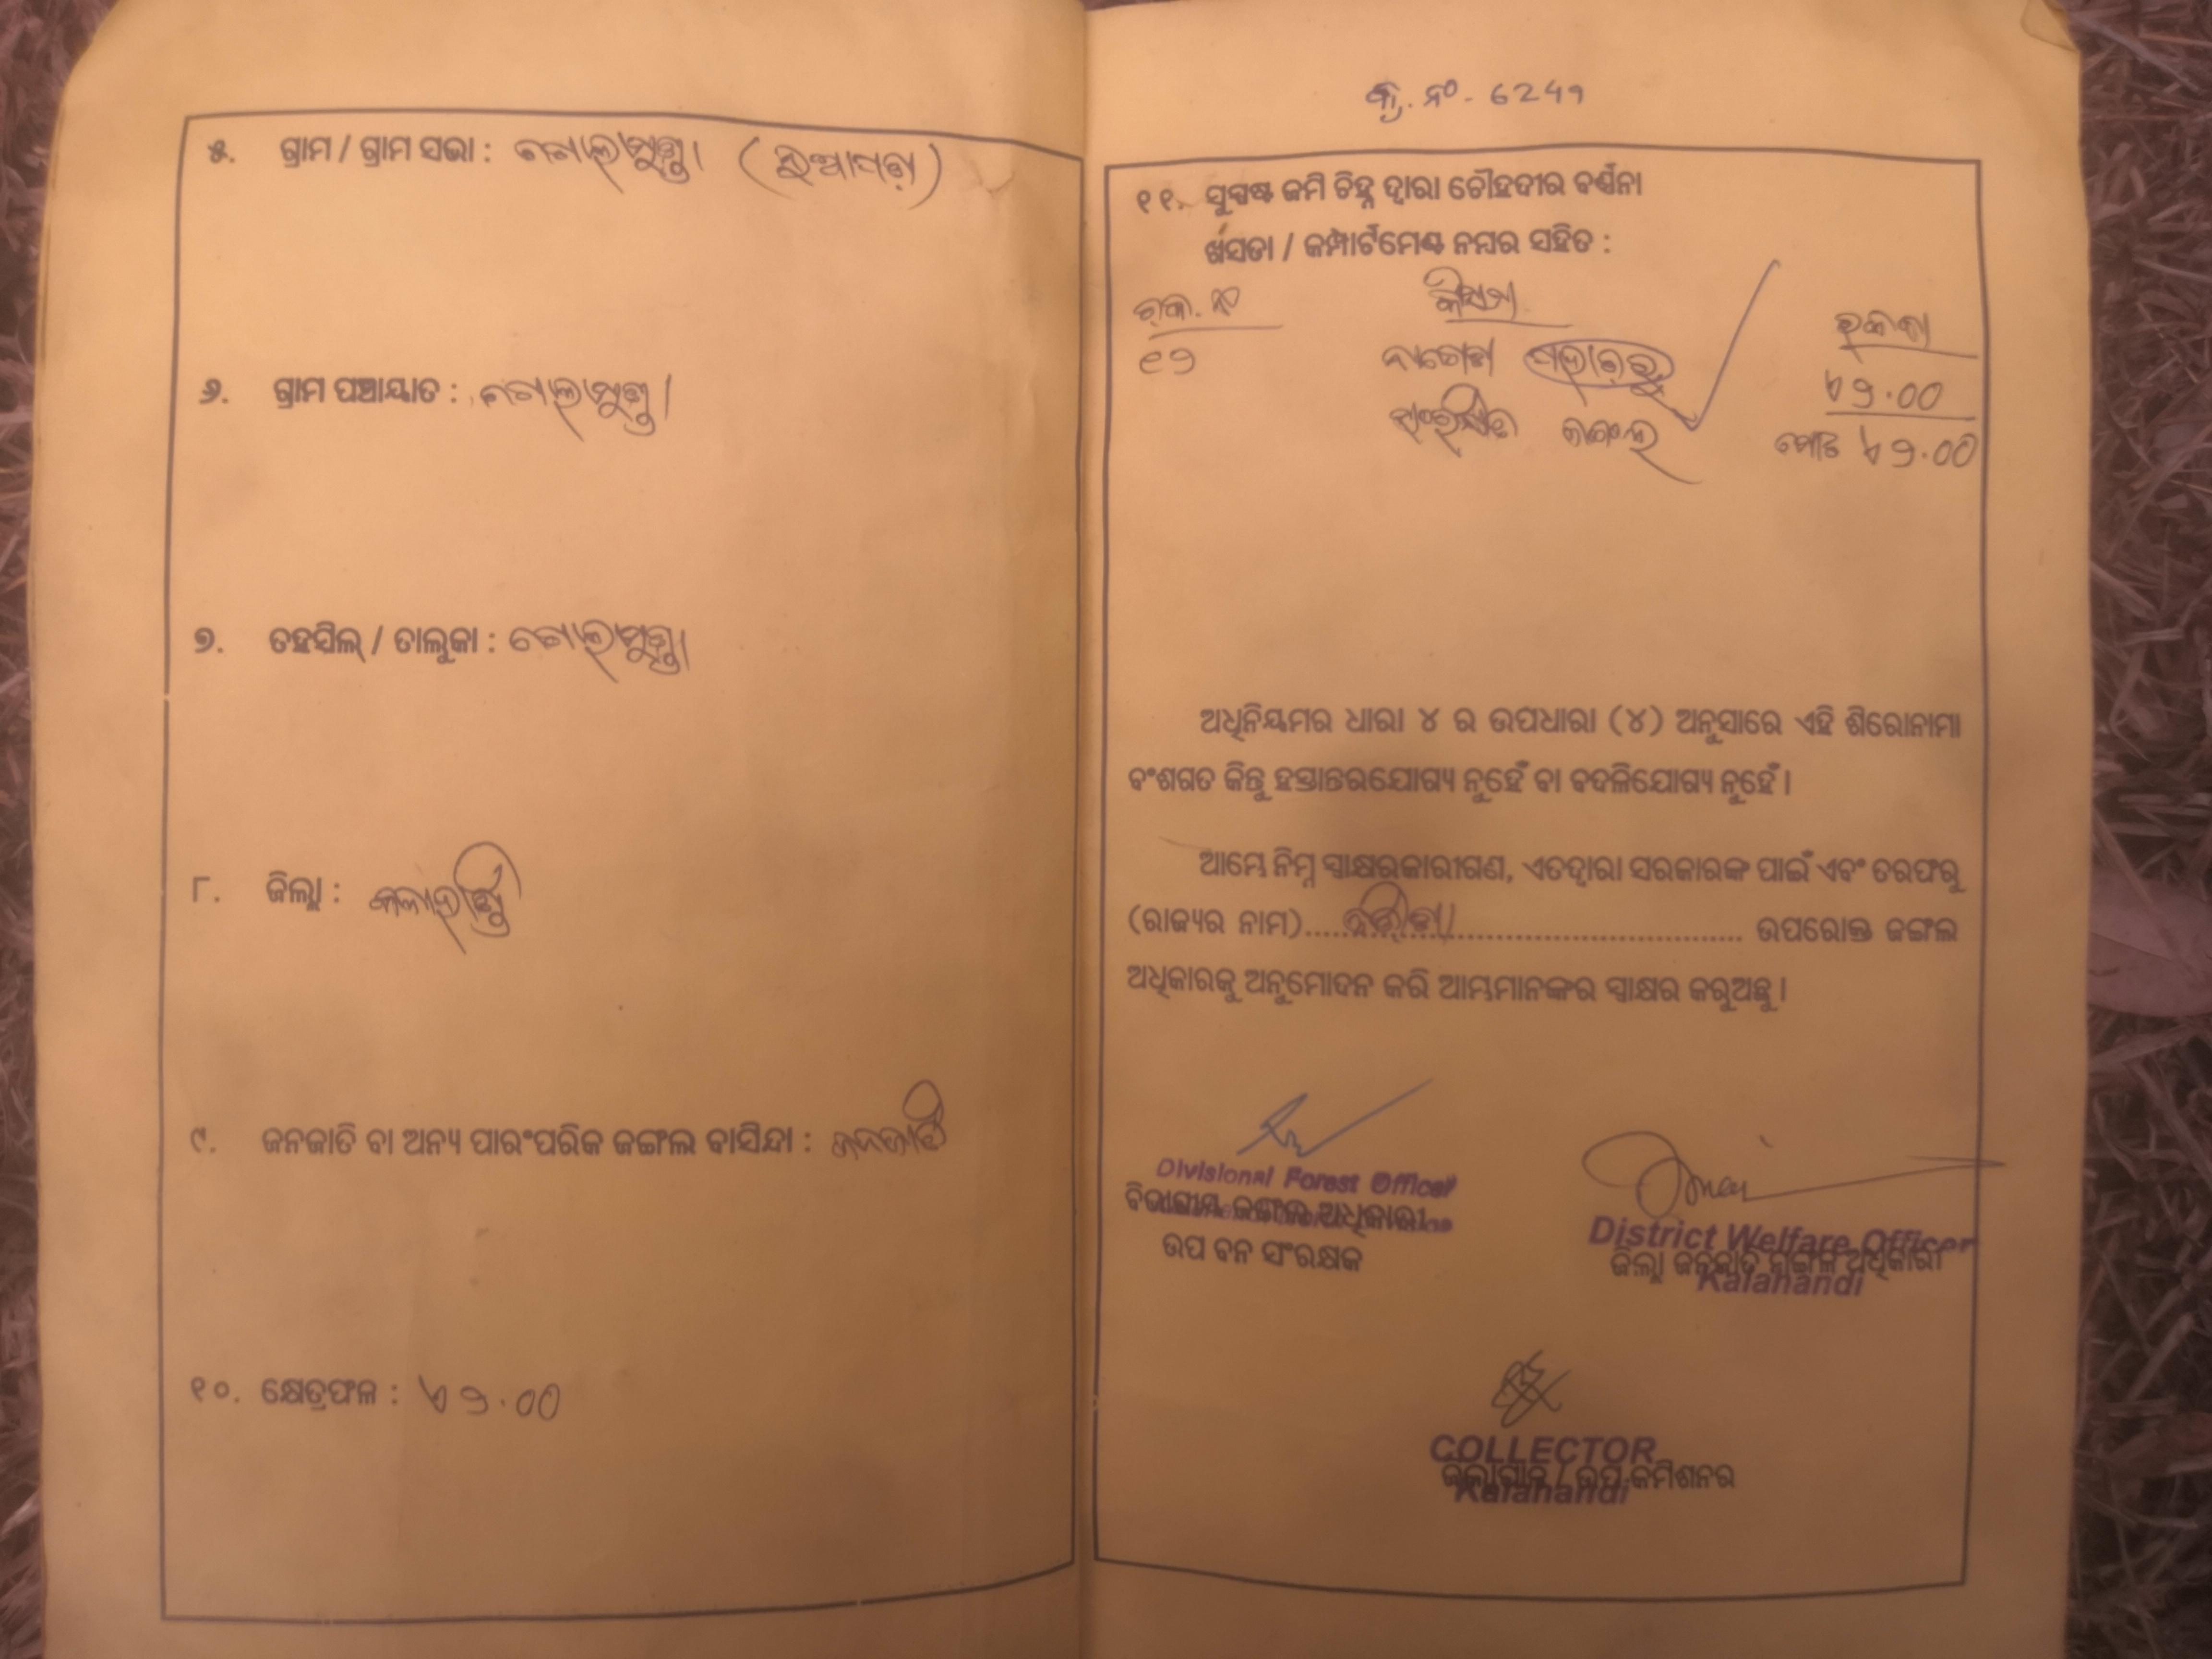 ୫. ଗ୍ରାମ / ଗ୍ରାମ ସଭା : ଗୋଲାମୁଣ୍ଡା
୬. ଗ୍ରାମ ପଞ୍ଚାୟାତ : ଗୋଲାମୁଣ୍ଡା
୭. ତହସିଲ୍ / ତାଲୁକା : ଗୋଲାମୁଣ୍ଡା
୮. ଜିଲ୍ଲା : କଳାହାଣ୍ଡି
୯. ଜନଜାତି ବା ଅନ୍ୟ ପାରଂପରିକ ଜଙ୍ଗଲ ବାସିନ୍ଦା : ଜନଜାତି
୧୦. କ୍ଷେତ୍ରଫଳ : ଏ ୨.୦୦
କ୍ର. ନଂ - 6249
୧୧. ସୁସ୍ପଷ୍ଟ ଜମି ଚିହ୍ନ ଦ୍ଵାରା ଚୌହଦୀର ବର୍ଣ୍ଣନା
ଖସଡା / କମ୍ପାର୍ଟମେଣ୍ଟ ନମ୍ବର ସହିତ :
କିସମ
ରକବା
ଏ ୨.୦୦
ଜଙ୍ଗଲ
ମୋଟ ଏ ୨.୦୦
ଅଧିନିୟମର ଧାରା ୪ ର ଉପଧାରା (୪) ଅନୁସାରେ ଏହି ଶିରୋନାମା
ବଂଶଗତ କିନ୍ତୁ ହସ୍ତାନ୍ତରଯୋଗ୍ୟ ନୁହେଁ ବା ବଦଳିଯୋଗ୍ୟ ନୁହେଁ ।
ଆମ୍ଭେ ନିମ୍ନ ସ୍ୱାକ୍ଷରକାରୀଗଣ, ଏତଦ୍ଵାରା ସରକାରଙ୍କ ପାଇଁ ଏବଂ ତରଫରୁ
(ରାଜ୍ୟର ନାମ)....ଓଡ଼ିଶା.... ଉପରୋକ୍ତ ଜଙ୍ଗଲ
ଅଧିକାରକୁ ଅନୁମୋଦନ କରି ଆମ୍ଭମାନଙ୍କର ସ୍ୱାକ୍ଷର କରୁଅଛୁ ।
Divisional Forest Officer
ବିଭାଗୀୟ ଜଙ୍ଗଲ ଅଧିକାରୀ
ଉପ ବନ ସଂରକ୍ଷକ
District Welfare Officer
ଜିଲ୍ଲା ଜନଜାତି ମଙ୍ଗଳ ଅଧିକାରୀ
Kalahandi
COLLECTOR
ଜିଲ୍ଲାପାଳ / ଉପ କମିଶନର
Kalahandi